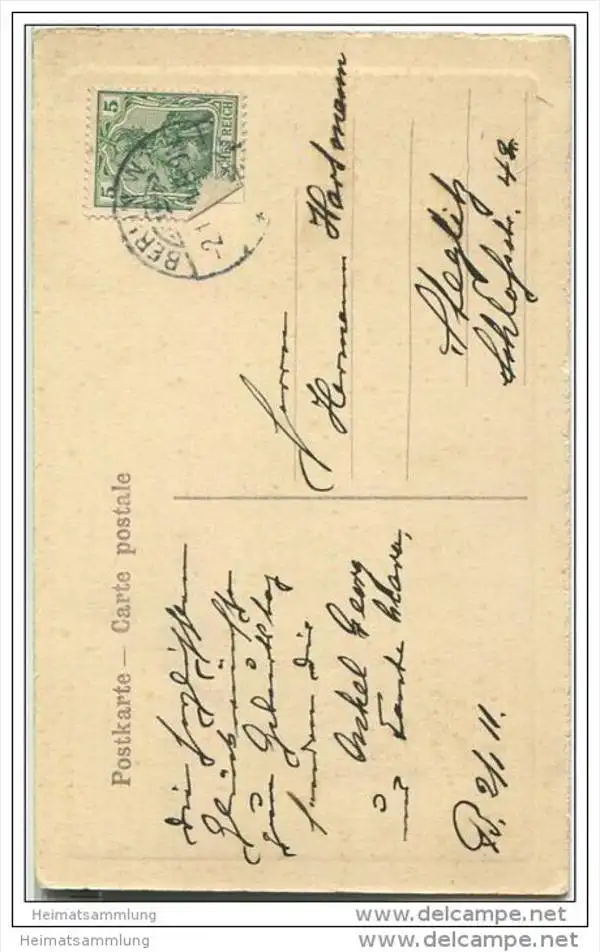 Postkarte — Carte postale
Die herzlichsten
Glückwünsche
zum Geburtstag
senden Dir
Onkel Georg
und Tante Klara,
B. 2/1 11.
Herrn
Hermann Hartmann
Steglitz
Schloßstr. 42
5 5
REICH
BERLIN W
2.1
Heimatsammlung
www.delcampe.net
Heimatsammlung
www.delcampe.net